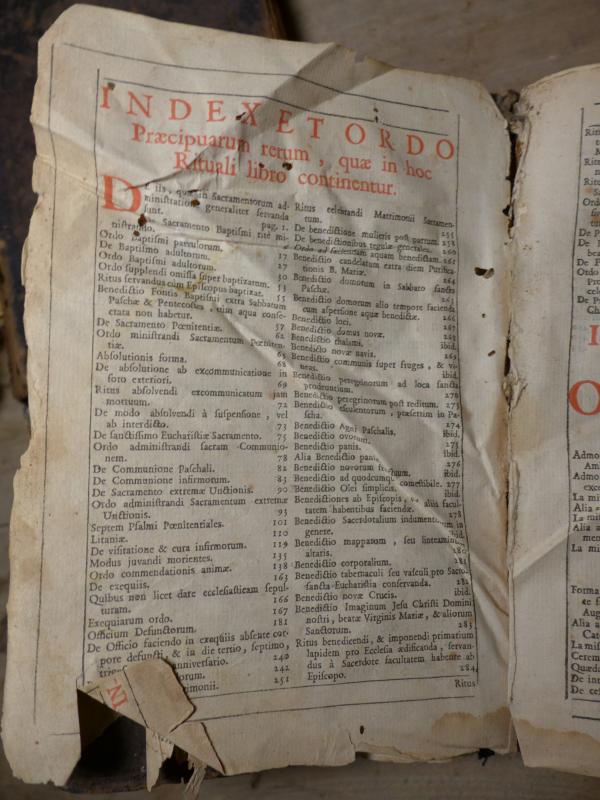 INDEX ET ORDO
Præcipuarum rerum, quæ in hoc
Rituali libro continentur.
DE iis, quæ in Sacramentorum ad-
ministratione generaliter servanda
sunt. pag. 1.
Sacramento Baptismi ritè mi-
nistrando.
Ordo Baptismi parvulorum. 17
De Baptismo adultorum. 27
Ordo Baptismi adultorum. 27
Ordo supplendi omissa super baptizatum. 50
Ritus servandus cùm Episcopus baptizat. 53
Benedictio Fontis Baptismi extra Sabbatum 55
Paschæ & Pentecostes, cùm aqua conse-
crata non habetur. 57
De Sacramento Pœnitentiæ. 62
Ordo ministrandi Sacramentum Pœniten-
tiæ. 65
Absolutionis forma. 68
De absolutione ab excommunicatione in
foro exteriori. 69
Ritus absolvendi excommunicatum jam
mortuum. 72
De modo absolvendi à suspensione, vel
ab interdicto. 73
De sanctissimo Eucharistiæ Sacramento. 75
Ordo administrandi sacram Communio-
nem. 78
De Communione Paschali. 82
De Communione infirmorum. 83
De Sacramento extremæ Unctionis. 90
Ordo administrandi Sacramentum extremæ
Unctionis. 93
Septem Psalmi Pœnitentiales. 101
Litaniæ. 110
De visitatione & cura infirmorum. 119
Modus juvandi morientes. 135
Ordo commendationis animæ. 138
De exequiis. 163
Quibus non licet dare ecclesiasticam sepul-
turam. 166
Exequiarum ordo. 167
Officium Defunctorum. 181
De Officio faciendo in exequiis absente cor-
pore defuncti, & in die tertio, septimo,
anniversario. 240
orum. 242
rimonii. 251
IN
Ritus celebrandi Matrimonii Sacramen-
tum. 255
De benedictione mulieris post partum. 258
De benedictionibus regulæ generales. 260
Ordo ad faciendam aquam benedictam. 261
Benedictio candelarum extra diem Purifica-
tionis B. Mariæ. 264
Benedictio domorum in Sabbato sancto
Paschæ. 265
Benedictio domorum alio tempore facienda
cum aspersione aquæ benedictæ. 266
Benedictio loci. 267
Benedictio domus novæ. 268
Benedictio thalami. ibid.
Benedictio novæ navis. 269
Benedictio communis super fruges, & vi-
neas. ibid.
Benedictio peregrinorum ad loca sancta
prodeuntium. 270
Benedictio peregrinorum post reditum. 273
Benedictio esculentorum, præsertim in Pa-
scha. 274
Benedictio Agni Paschalis. ibid.
Benedictio ovorum. 275
Benedictio panis. ibid.
Alia Benedictio panis. 276
Benedictio novorum fructuum. ibid.
Benedictio ad quodcumque comestibile. 277
Benedictio Olei simplicis. ibid.
Benedictiones ab Episcopis, vel aliis facul-
tatem habentibus faciendæ. 278
Benedictio Sacerdotalium indumentorum in
genere. ibid.
Benedictio mapparum, seu linteaminum
altaris. 280
Benedictio corporalium. 281
Benedictio tabernaculi seu vasculi pro Sacro-
sancta Eucharistia conservanda. 282
Benedictio novæ Crucis. ibid.
Benedictio Imaginum Jesu Christi Domini
nostri, beatæ Virginis Mariæ, & aliorum
Sanctorum. 283
Ritus benedicendi, & imponendi primarium
lapidem pro Ecclesia ædificanda, servan-
dus à Sacerdote facultatem habente ab
Episcopo. 284
Ritus